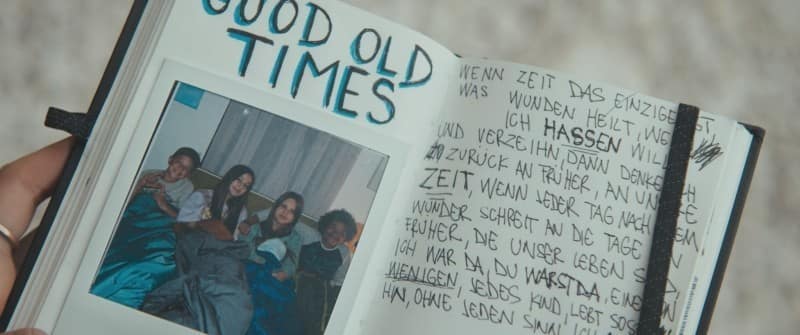 GOOD OLD
TIMES
WENN ZEIT DAS EINZIGE IST,
WAS WUNDEN HEILT, WENN
ICH HASSEN WILL
UND VERZEIHN, DANN DENKE ICH
ZURÜCK AN FRÜHER, AN UNSERE
ZEIT, WENN JEDER TAG NACH
WUNDER SCHREIT AN DIE TAGE
FRÜHER, DIE UNSER LEBEN SIND,
ICH WAR DA, DU WARST DA,
WENIGEN, JEDES KIND, LEBT
HIN, OHNE JEDEN SINN, ICH